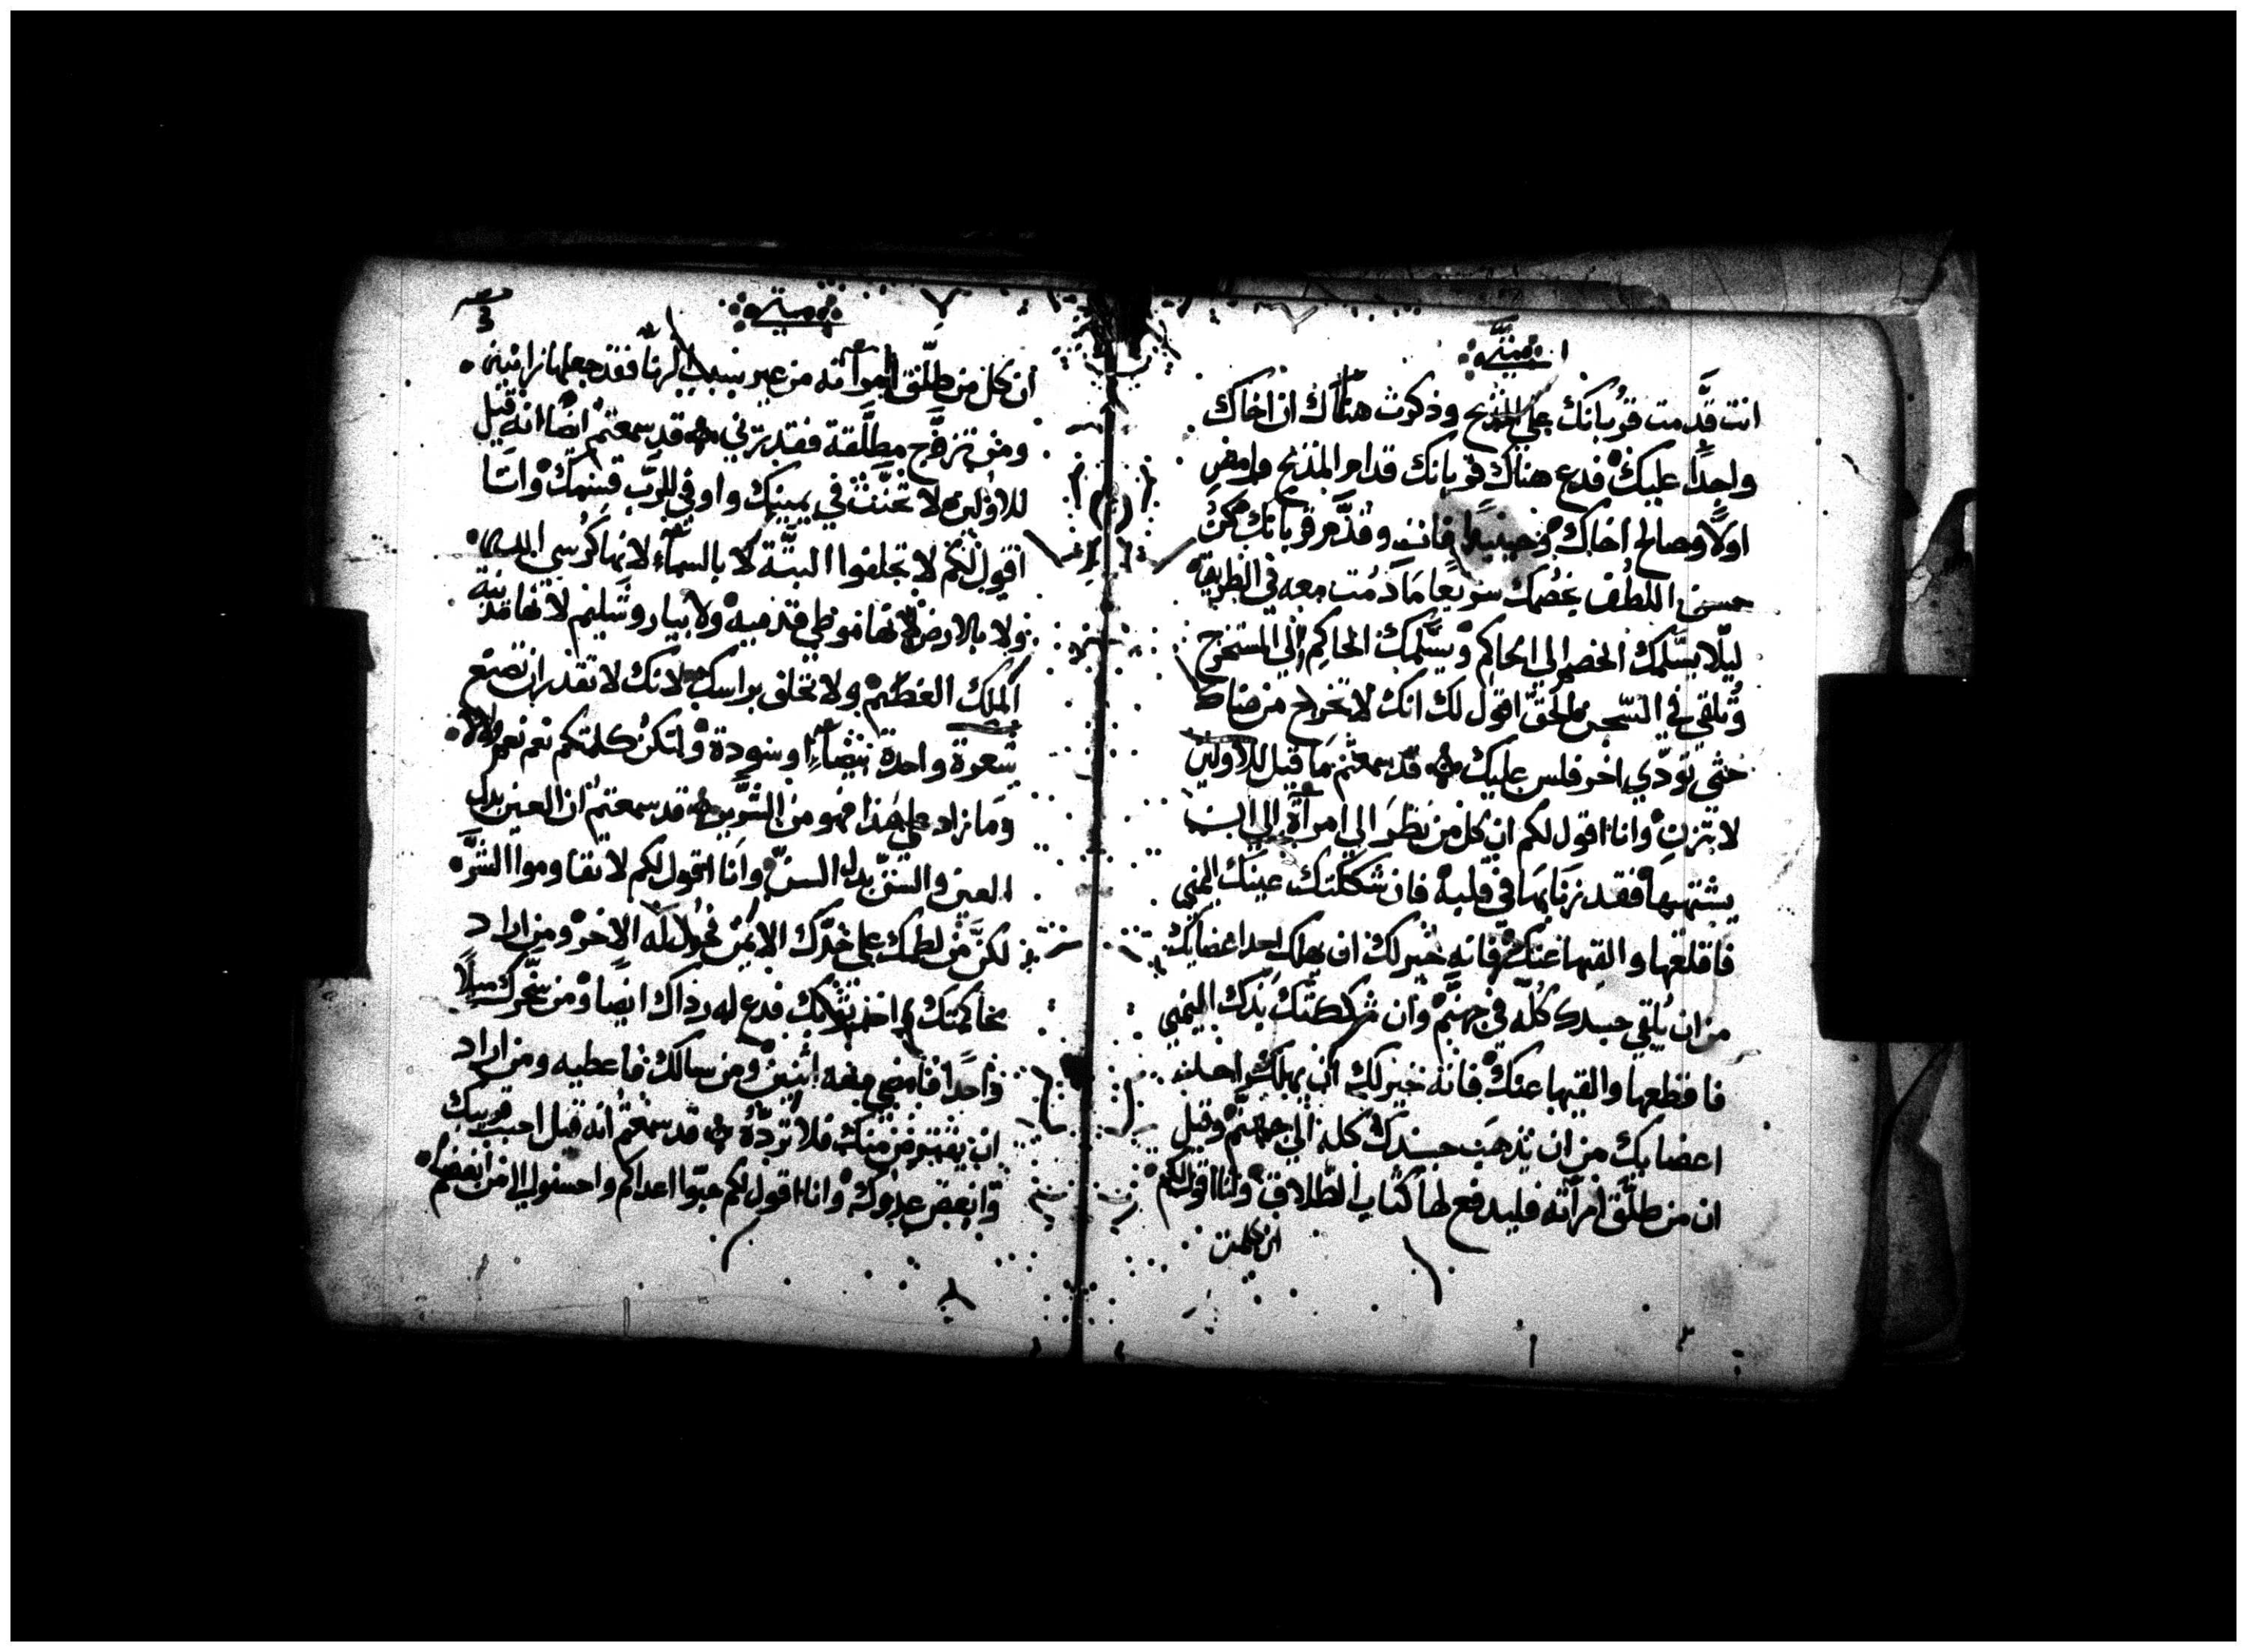 انت قدَّمت قُربانك علي المذبح وذكرت هناك ان اخاك
واجدًا عليك فدع هناك قربانك قدام المذبح وامض
اولًا وصالح اخاك وحينيذٍ فات وقدَّم قربانك كن
حسن اللطُف بخصمك سريعًا مَا دُمت معه في الطريق
ليلّا يسَّلمك الخصم الي الحاكم ويسَّلمك الحاكِم الي المستخرج
وتُلقي في السّجن الحق اقول لك انك لا تخرج من هناك
حتي تودّي اخر فلس عليك قد سمعتم مَا قيل للاولين
لا تزنِ وانا اقول لكم ان كل من نظَرَ الي امراَةٍ
يشتهيها فقد زنَا بهَا في قلبه فان شككتك عينك اليمني
فاقلعها والقيها عنك فانه خير لك ان يهلك احد اعضايك
من ان يُلقي جسدك كُلّه في جهنّم وان شككتك يَدك اليمني
فاقطعها والقيها عنك فانه خير لك ان يهلك احد
اعضايك من ان يذهَب جسدك كله الي جهنّم وقيل
ان من طلَّق امراَته فليدفع لها كتاب الطّلاق وانا اقول لكم
ان كل من
ان كل من طلَّق امراَته من غير سبب الزنا فقد جعلها زانية
ومن تزوَّج مطلَّقة فقد زني قد سمعتم ايضًا انه قيل
للاولين لا تحنَّث في يمينك واوفي للربّ قسمك وانَا
اقول لكم لا تحلفوا البتَّة لا بالسمآء لانها كُرسي الله
ولا بالارض لانها موطي قدميه ولا بياروشَليم لانها مدينة
الملك العظيم ولا تحلف براسك لانك لا تقدر ان تصنع
شعرة واحدة بيضآء او سودة ولتكن كلمتكم نعم نعم ولا لا
ومَا زاد علي هَذا فهو من الشرّير قد سمعتم ان العين بدل
العين والسنّ بدل السنّ وانَا اقول لكم لا تقاوموا الشرَّ
لكنَّ مَن لطمك علي خدّك الايمن فحُول له الاخر ومن اراد
محاكمتك واخذ ثوبك فدع له رداك ايضًا ومن سخّرك ميلًا
واحدًا فامضي معه اثنين ومن سالك فاعطيه ومن اراد
ان يقترض منك فلا تردّهُ قد سمعتم انه قيل احبب قريبك
وابغض عدوك وانا اقول لكم حبّوا اعداكم واحسنوا الي من ابغضكم